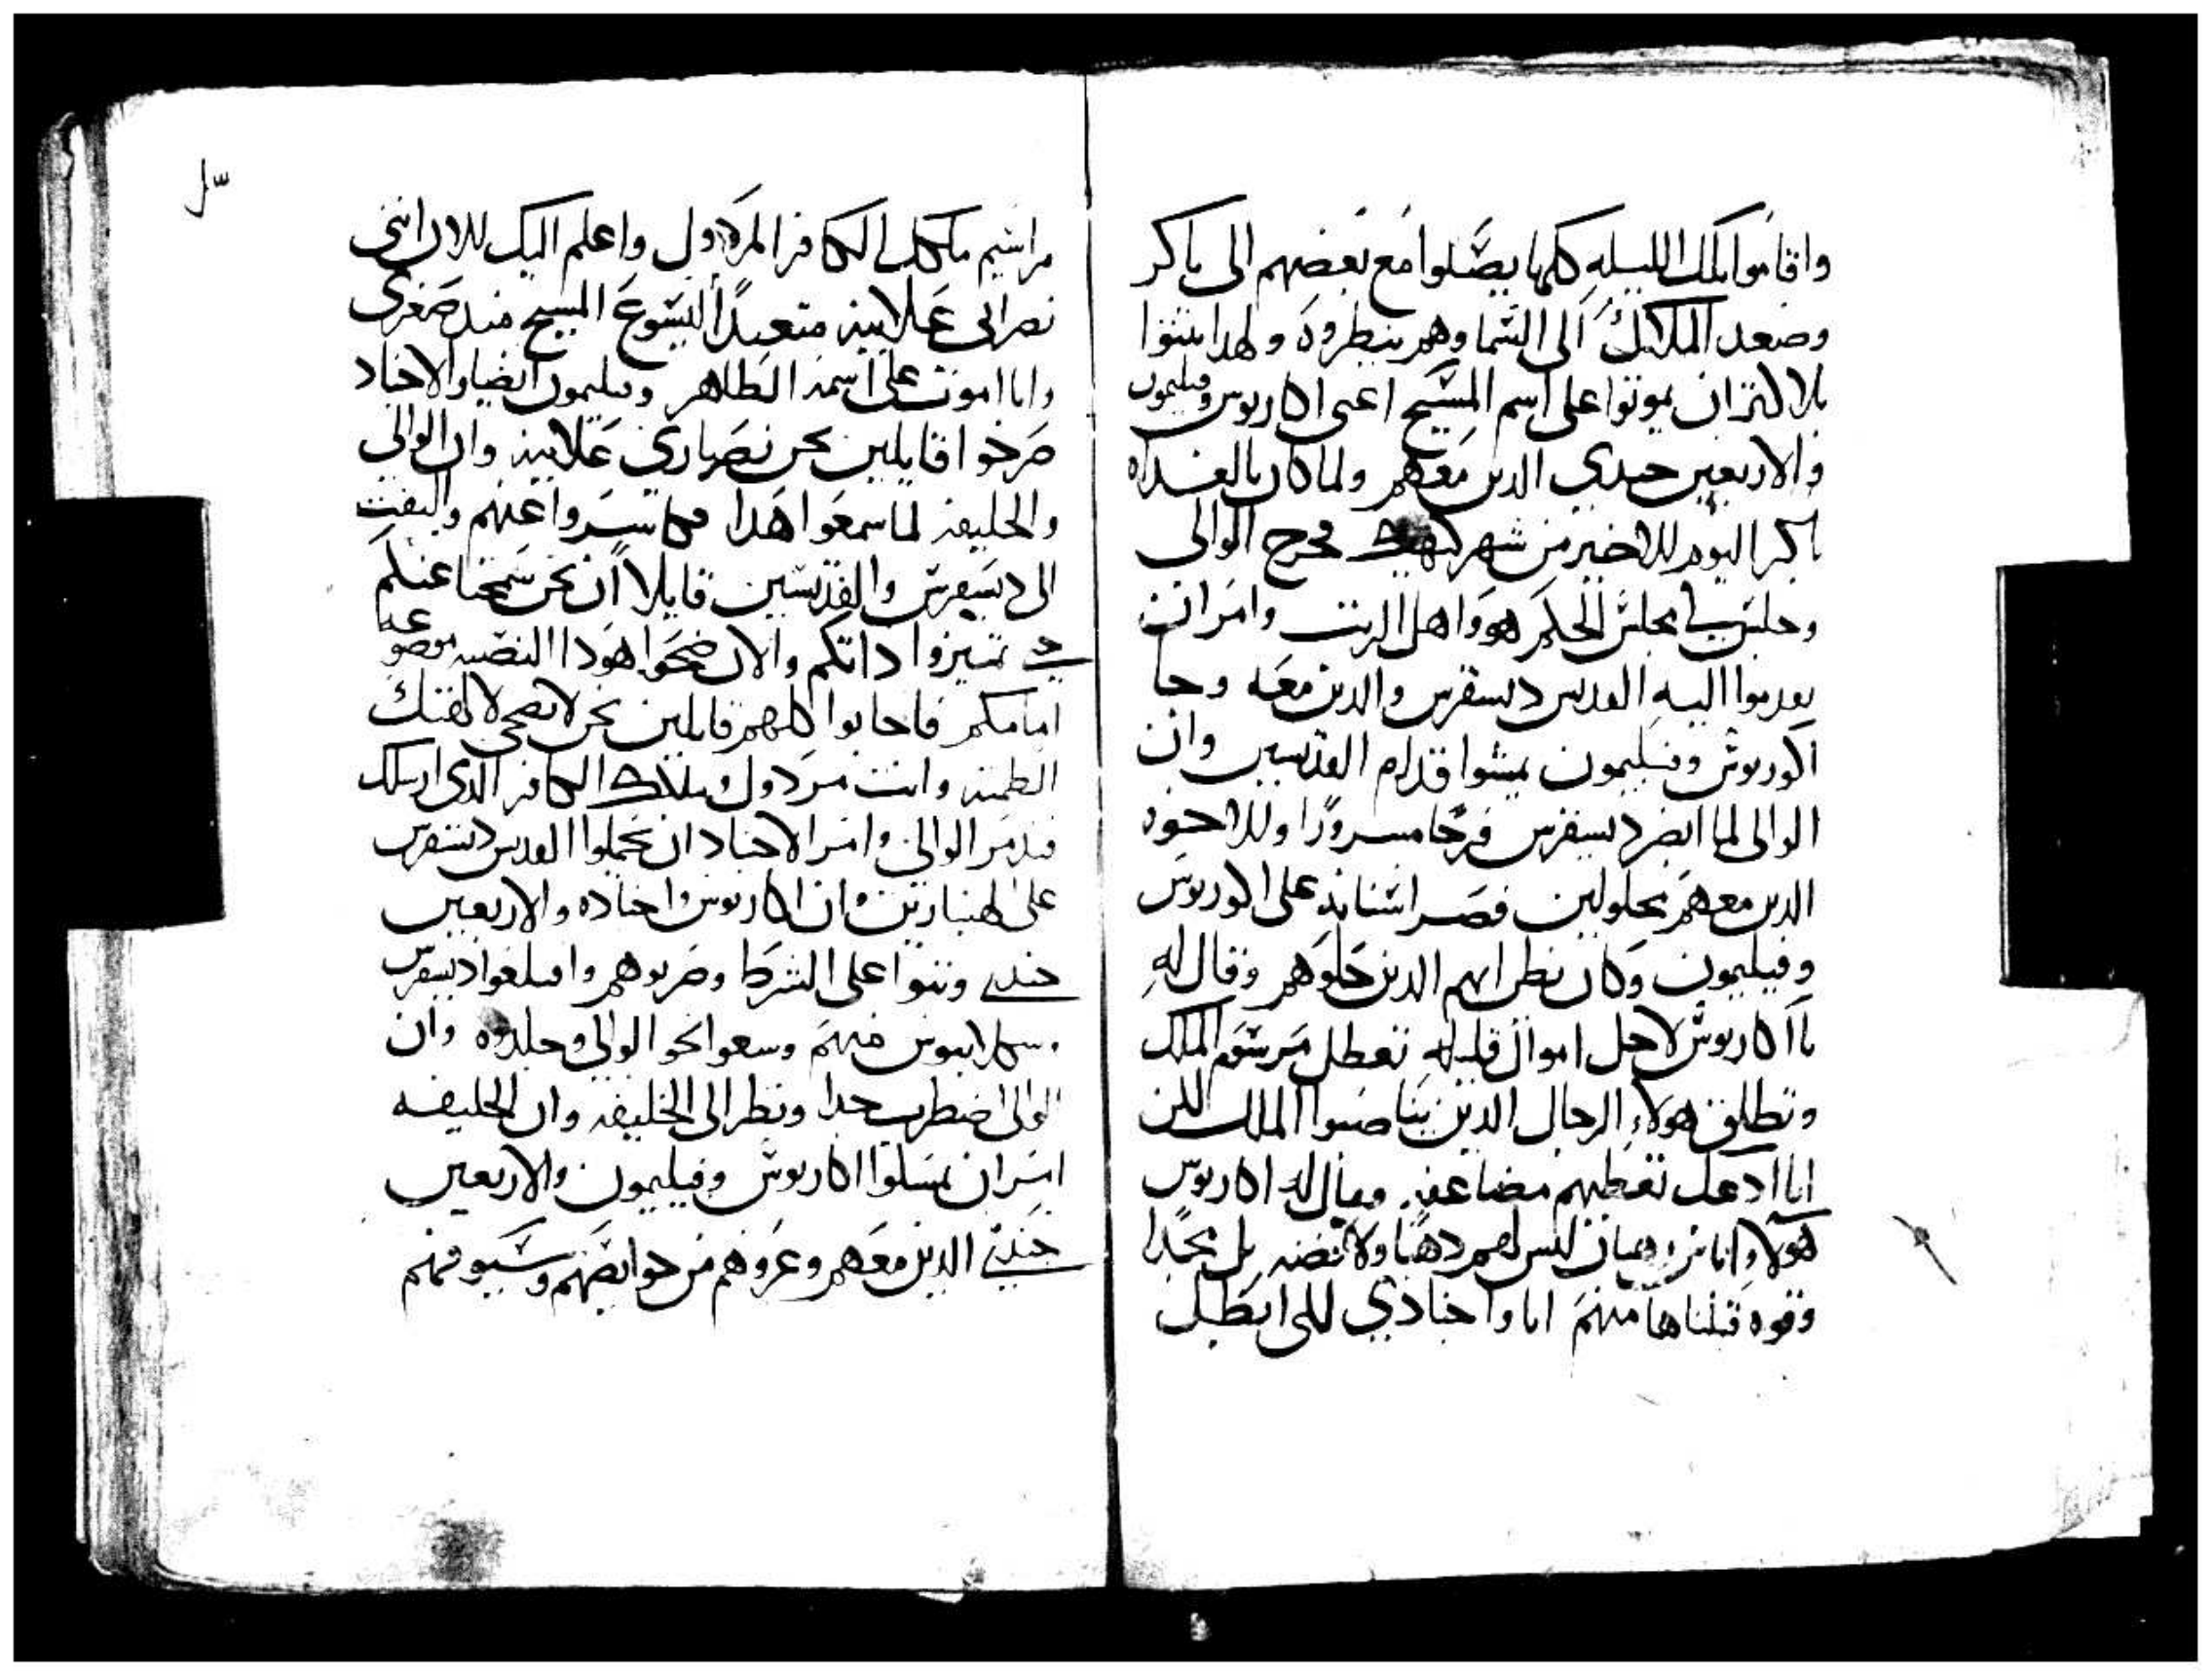 واقاموا تلك الليله كلها يصلوا مع بعضهم الى باكر
وصعد الملاك الى السما وهم ينظروه ولهدا تبتوا
بلاكتر ان يموتوا على اسم المسيح اعنى اكاريوس وفيليمون
والاربعين جندي الدين معهم ولما كان بالغداه
باكر اليوم الاخير من شهر كيهك خرج الوالى
وجلس في مجلس الحكم هو واهل الريت وامر ان
يقدموا اليه القديس ديسقرس والدين معه وجا
اكوريوس وفيليمون يمشوا قدام القديسين وان
الوالى لما ابصر ديسقرس فرحا مسرورا وللاخوه
الدين معهم محلولين فصر اسنانه على اكوريوس
وفيليمون وكان يظن انهم الدين حلوهم وقال له
يا اكاريوس لاجل اموال قليله تعطل مرسوم الملك
وتطلق هولاء الرجال الدين يناصبوا الملك لكن
انا ادعك تعطيهم مضاعفه وقال له اكاريوس
هولا اناس رهبان ليس لهم دهبا ولا فضه بل مجدا
وقوه قبلناها منهم انا واجنادي لكى ابطل
مراسيم ملكك الكافر المردول واعلم اليك الان اننى
نصرانى علانيه متعبدا ليسوع المسيح مند صغرى
وانا اموت على اسمه الطاهر وفيليمون ايضا والاجناد
صرخوا قايلين نحن نصارى علانيه وان الوالى
والخليفه لما سمعوا هدا عنهم والتفت
الى ديسقرس والقديسين قايلا ان نحن سمحنا عنكم
حتى تميزوا داتكم والان ضحوا هودا النصبه موضوعه
امامكم فاجابوا كلهم قايلين نحن لا نضحى لالهتك
الطمته وانت مردول وملكك الكافر الدى ارسلك
فتدمر الوالى وامر الاجناد ان يحملوا القديس ديسقرس
على الهنبازين وان اكاريوس واجناده والاربعين
جندي وتبوا على الشرط وضربوهم واقلعوا ديسقرس
منهم وسعوا نحو الوالى وجلدوه وان
الوالى اضطرب جدا ونظر الى الخليفه وان الخليفه
امر ان يمسكوا اكاريوس وفيليمون والاربعين
جندي الدين معهم وعروهم من حوايصهم وسيوفهم